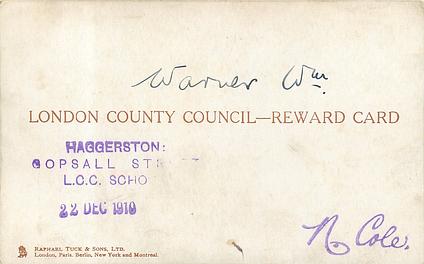 Warner Wm.
LONDON COUNTY COUNCIL—REWARD CARD
HAGGERSTON:
GOPSALL ST
L.C.C. SCHO
22 DEC 1910
N Cole.
RAPHAEL TUCK & SONS, LTD.
London, Paris, Berlin, New York and Montreal.